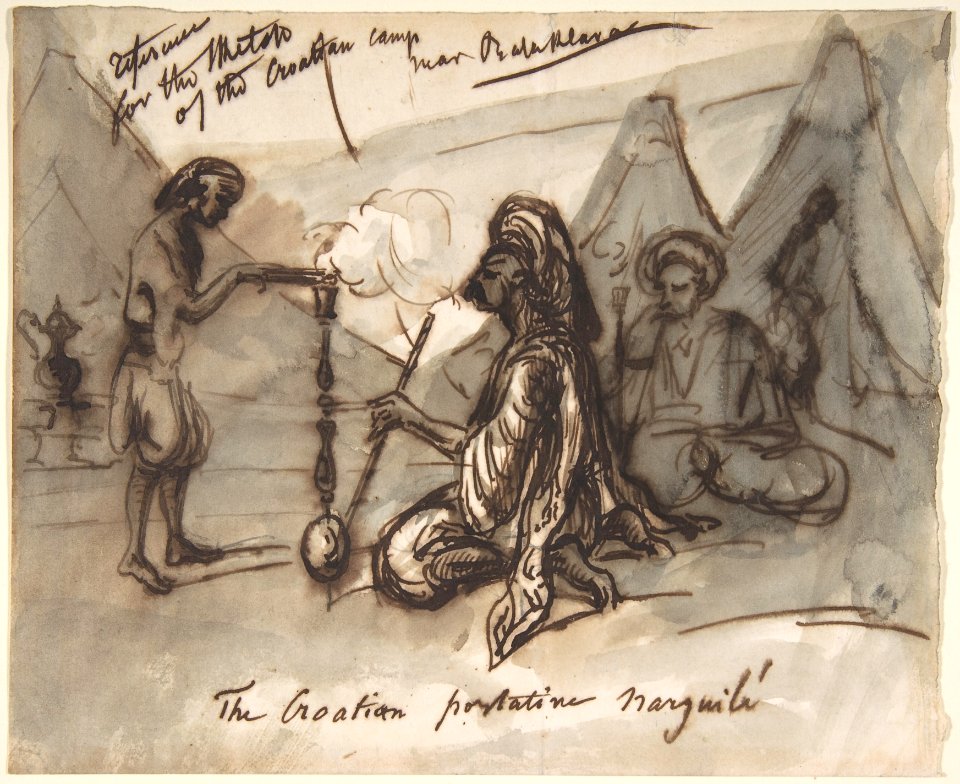 reference
for the sketch
of the Croatian camp
near Balaklava
The Croatian portative narguilé